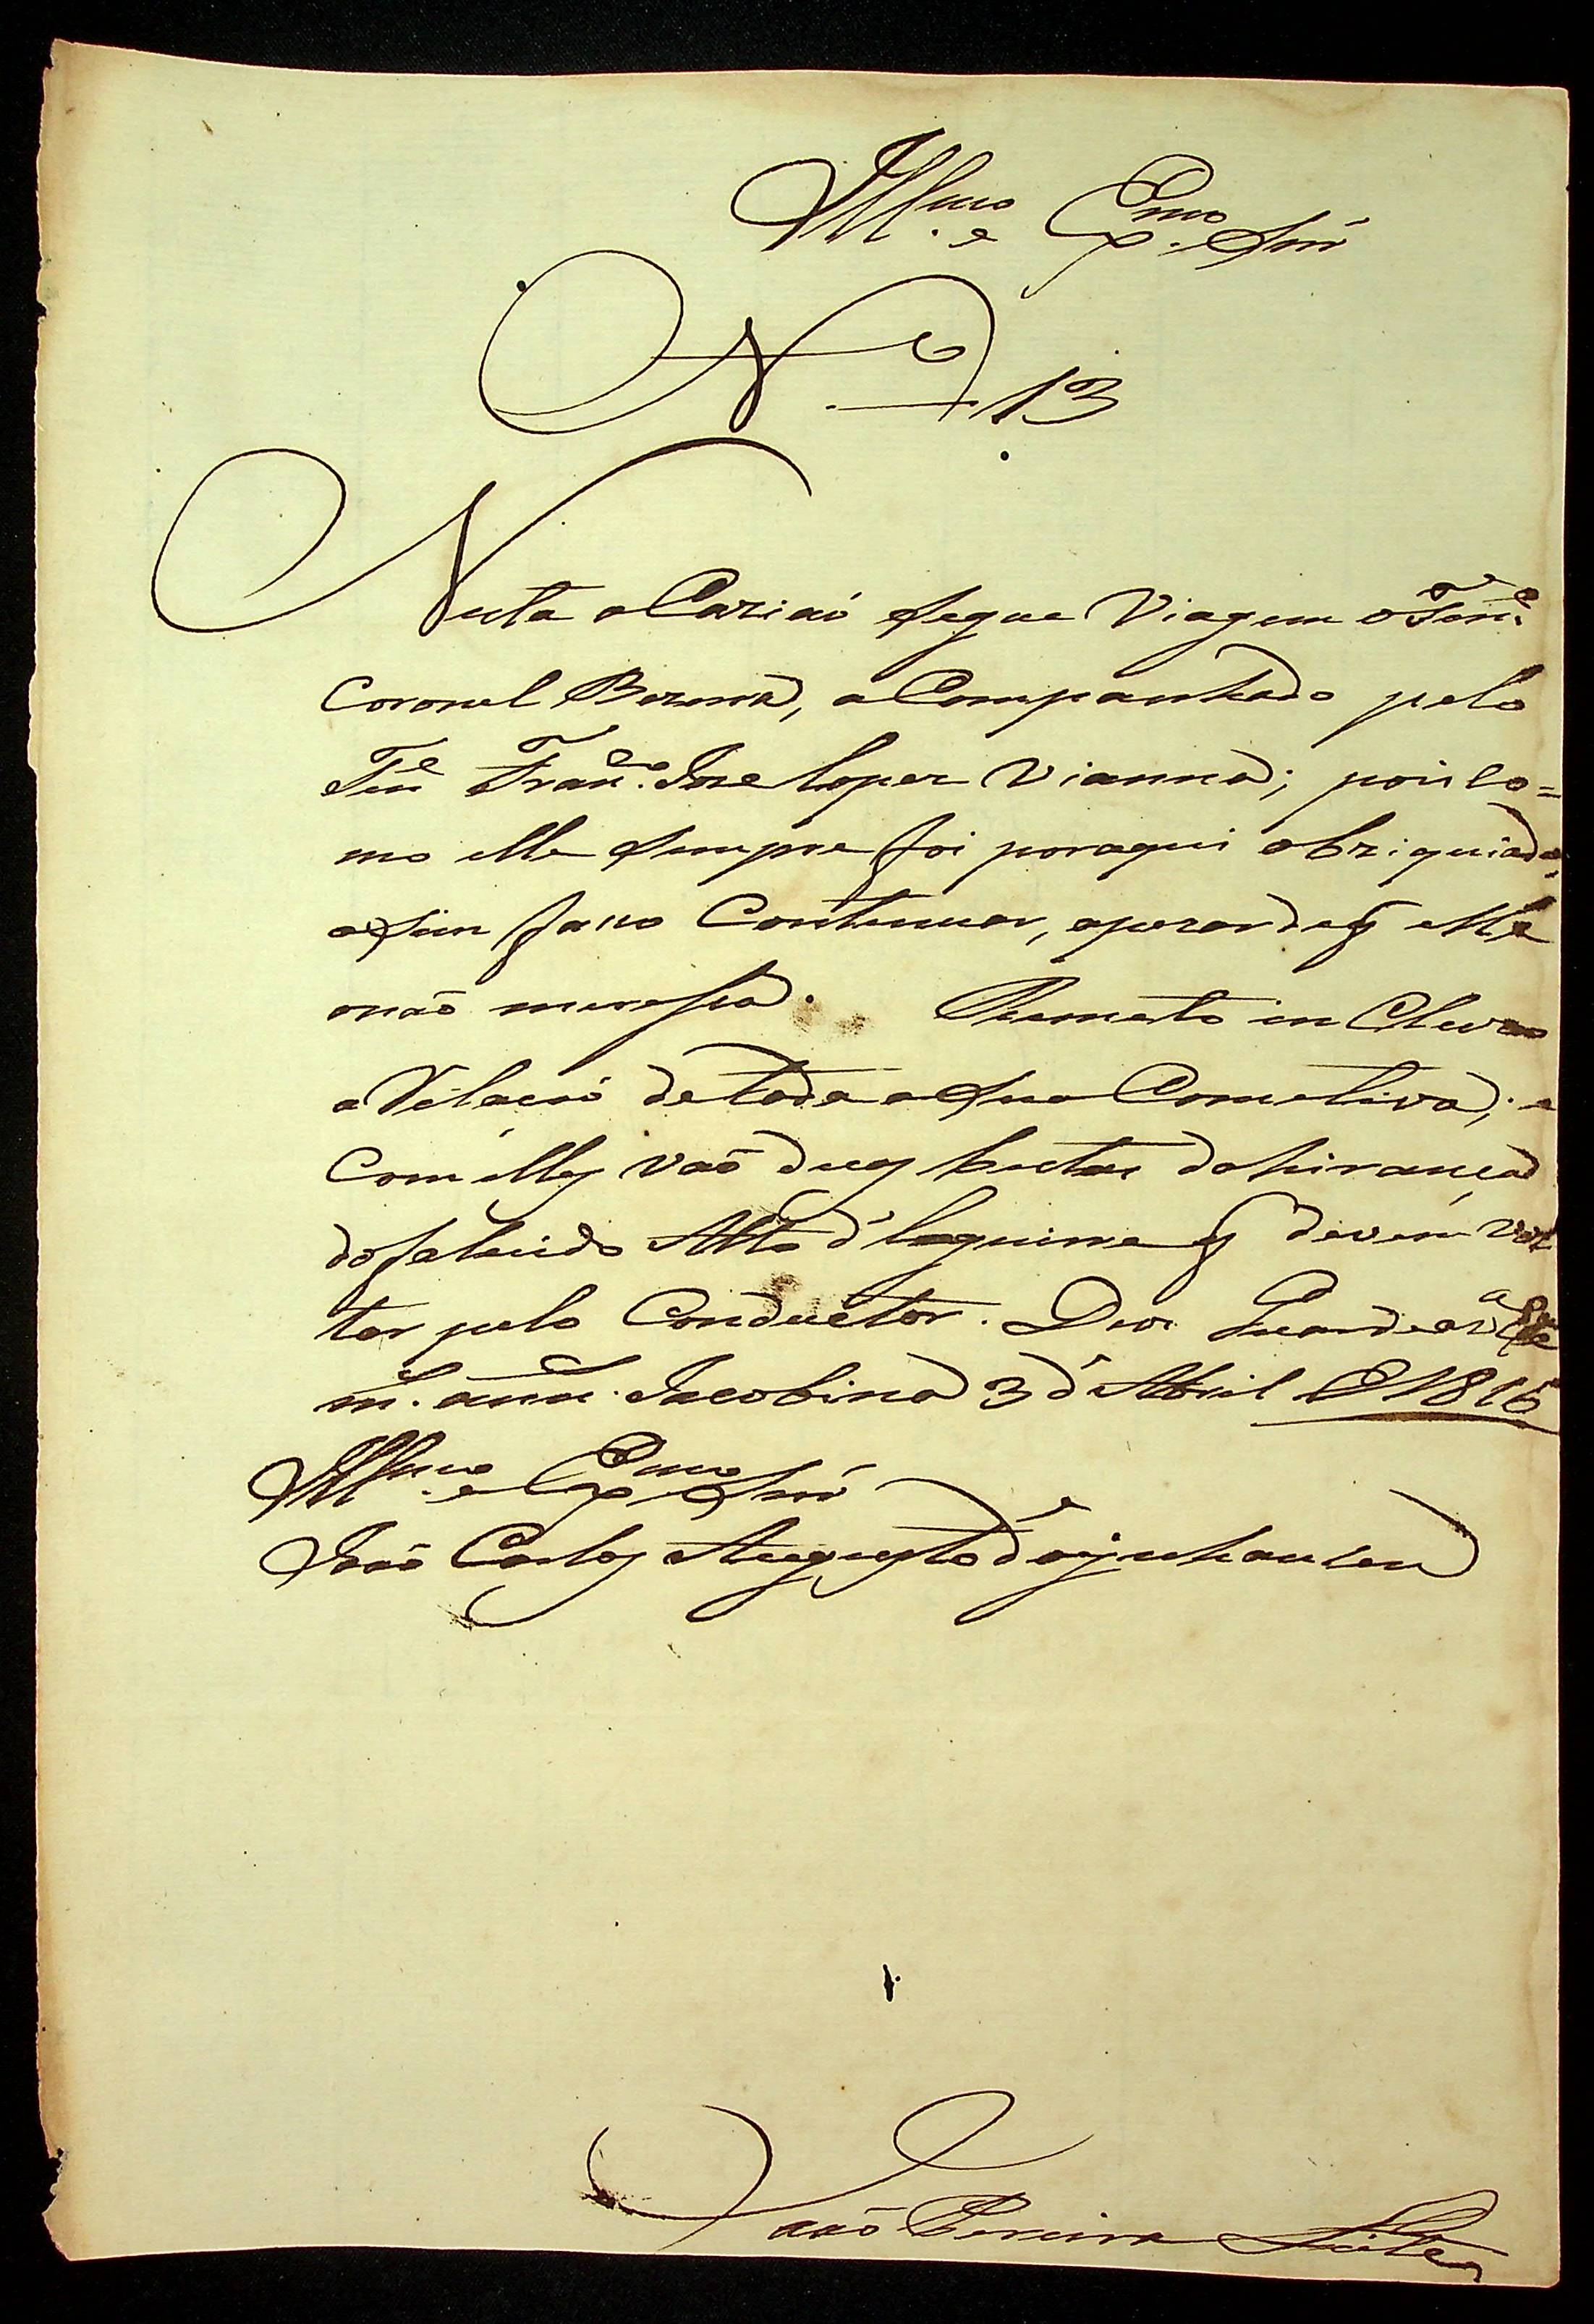 Illmo. e Exmo. Snr
N 13
Nesta oCaziaõ Segue Viagem o Tene.
Coronel Bozma, aCompanhado pelo
Tene Franco. Joze Lopez Vianna; pois co=
mo elle Sempre foi poraqui obziquiado,
asim faso Continuar, apezar de q elle
onaõ meresia. Remeto incluzo
aRelasaõ detoda a Sua Cometiva; e
Com elles vaõ duas bestas da hirança
do falecido Alto d' q devem vol
tar pelo Conductor. Deos Guarde a V Exa
ms. anns. Jacobina 3 d' Abril d' 1816
Illmo. e Exmo Snr
Joaõ Carlos Augusto d' Oijenhausen
Joaõ Pereira Leite